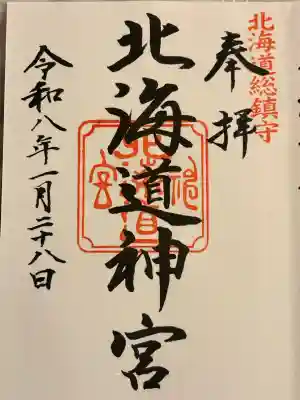 北海道総鎮守
奉拝
北海道神宮
北海道神宮
令和八年一月二十八日